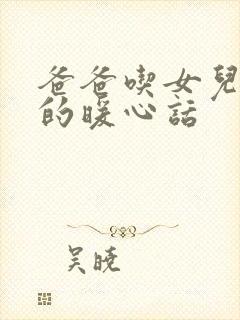 爸爸喫女兒
的暖心話
吴曉